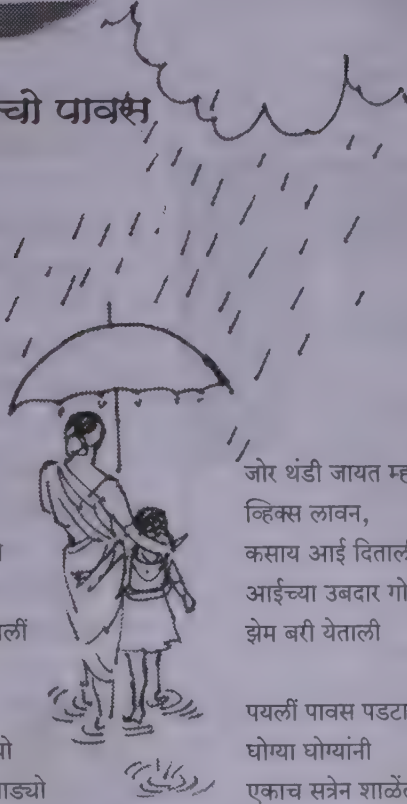 चो पावस
लीं
यो
ाड्यो
जोर थंडी जायत म्ह
व्हिक्स लावन,
कसाय आई दिताली
आईच्या उबदार गो
झेम बरी येताली
पयलीं पावस पडटा
घोग्या घोग्यांनी
एकाच सत्रेन शाळें